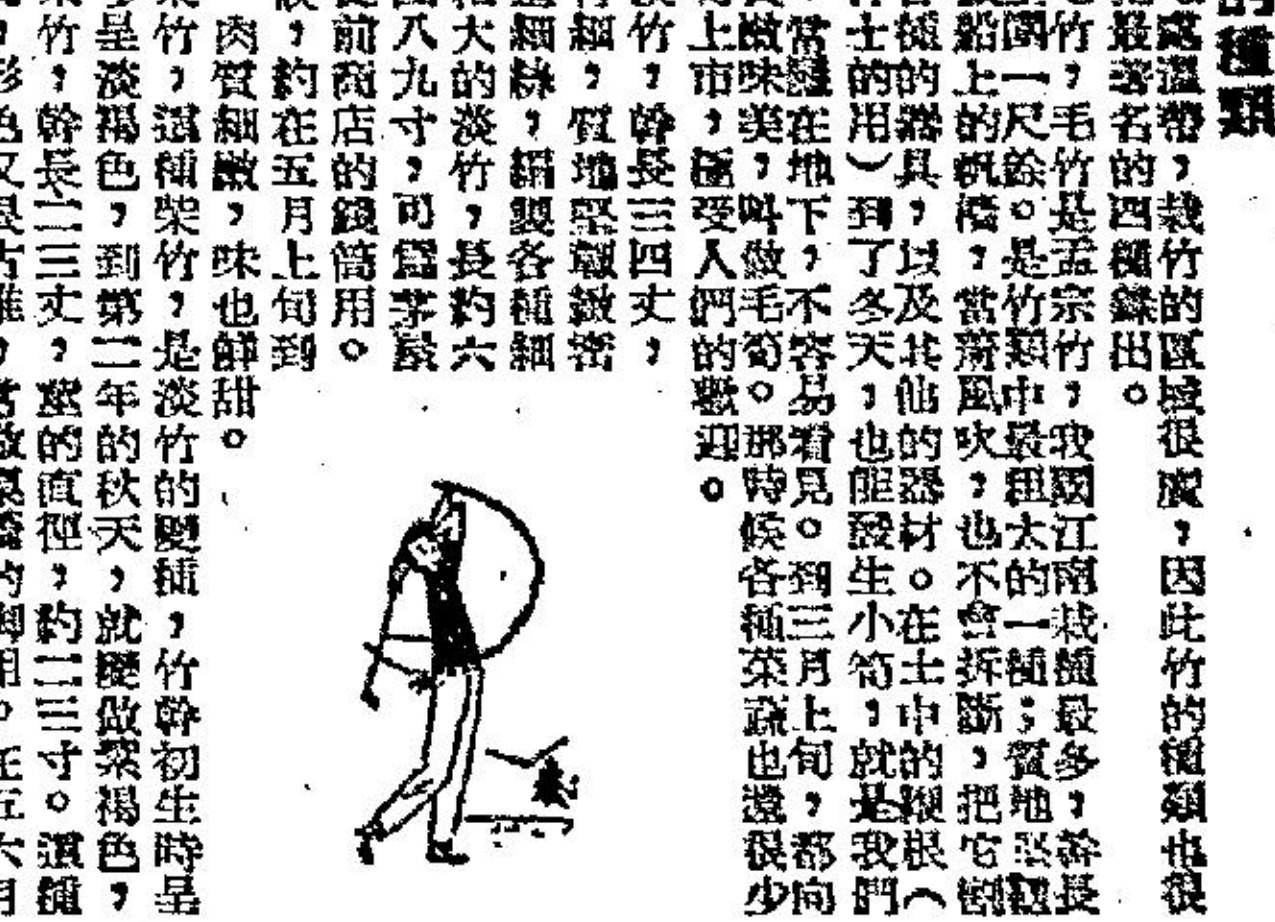 的種類
處溫帶，栽竹的區域很廣，因此竹的種類也很
最著名的四種錄出。
竹，毛竹是孟宗竹，我國江南栽種最多，幹長
圍一尺餘。是竹類中最粗大的一種；質地堅韌
船上的帆檣，當著風吹，也不會拆斷，把它劈
各種的器具，以及其他的器材。在土中的鞭根（
士的用）到了冬天，也能發生小筍，就是我們
常隱在地下，不容易看見。到三月上旬，都向
嫩味美，叫做毛筍。那時候各種菜蔬也還很少
上市，極受人們的歡迎。
竹，幹長三四丈，
竹細，質地堅韌緻密
細絲，編製各種細
大的淡竹，長約六
八九寸，可為茅屋
前商店的錢筒用。
，約在五月上旬到
肉質細嫩，味也鮮甜。
竹，這種柴竹，是淡竹的變種，竹幹初生時呈
呈淡褐色，到第二年的秋天，就變做紫褐色，
竹，幹長二三丈，壁的直徑，約二三寸。這種
，形色又是古雅，常做桌椅的脚用。在五六月